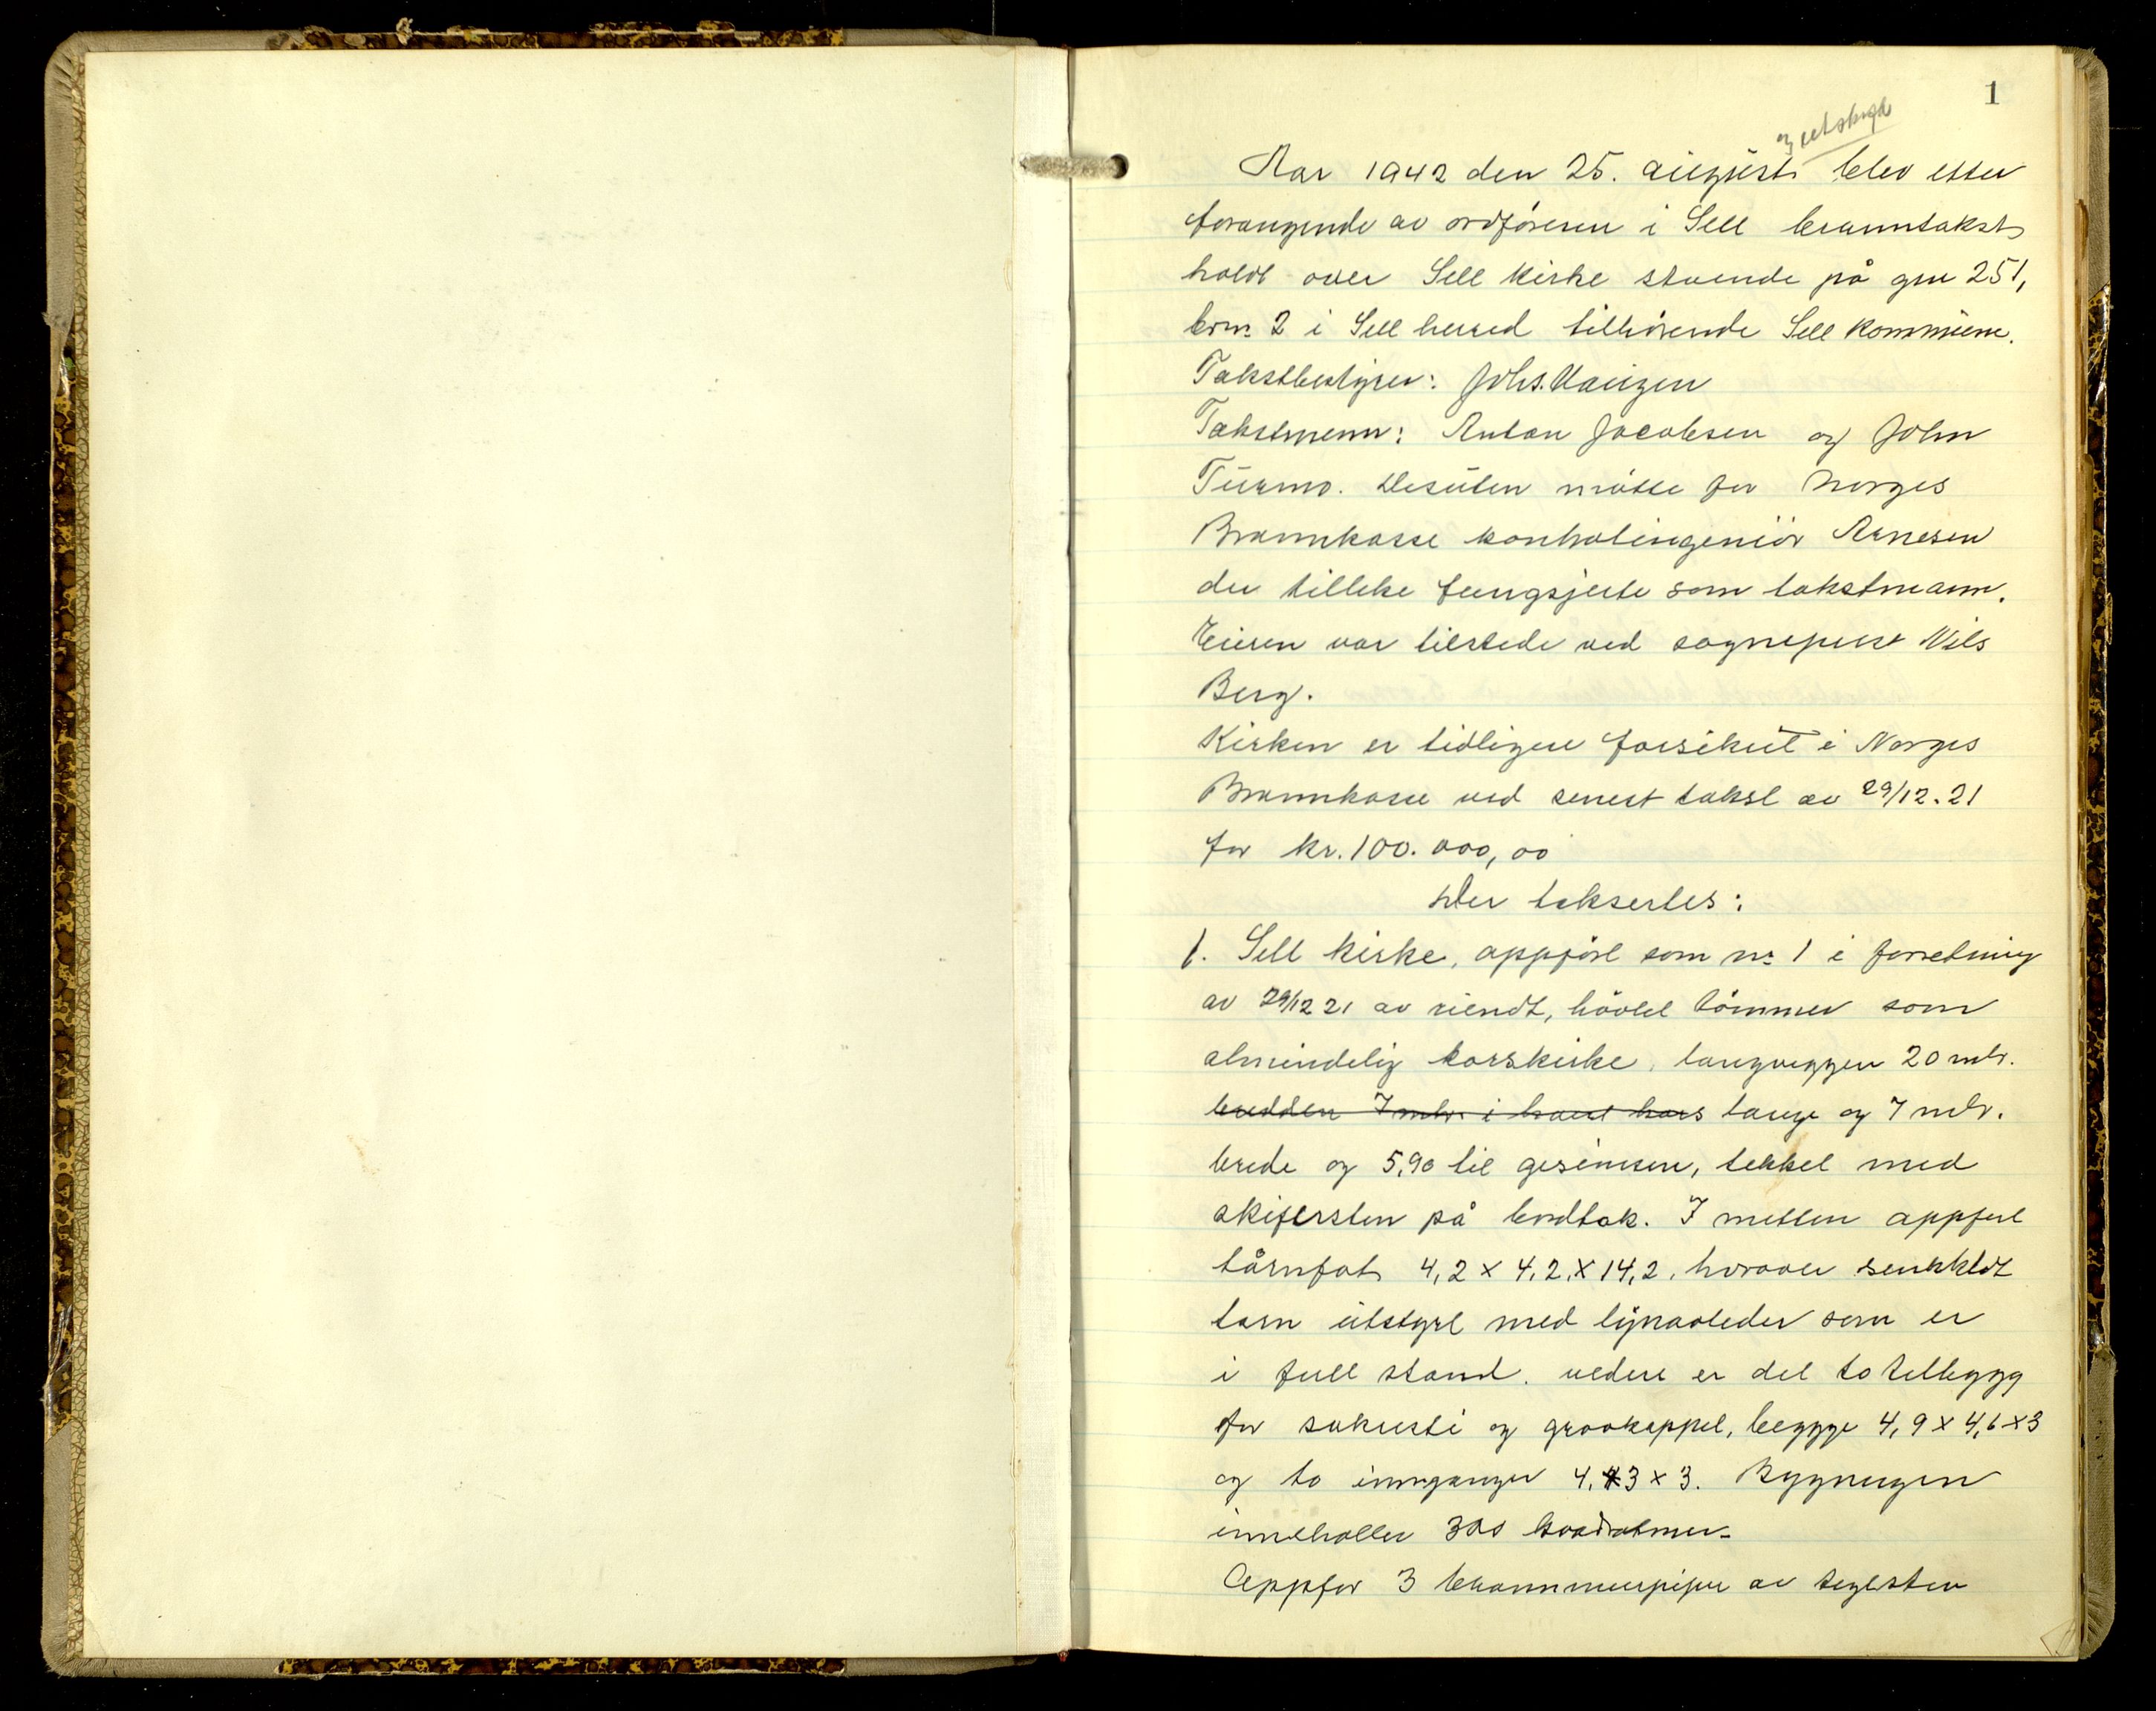 1
og utskrift
Aar 1942 den 25. august blev etter
forangende av ordføreren i Sell branntakst
holdt over Sell Kirke stående på gnr 251,
brnr 2 i Sell herred tilhørende Sell kommune.
Takstbestyrer: Johs. Kaurgen
Takstmenn: Anton Jacobsen og John
Turmo. Desuten møtte for Norges
Brannkasse kontrolingeniør Arnesen
der tillike fungsjerte som takstmann.
Eieren var tilstede ved sogneprest Nils
Berg.
Kirken er tidligere forsikret i Norges
Brannkasse ved senest takst av 29/12.21
for kr. 100.000,00
Der taksertes:
1. Sell kirke, oppført som nr 1 i forretning
av 29/12 21 av rundt, høvlet tømmer som
almindelig korskirke, langveggen 20 mtr.
bredden 7 mtr. i hvert kors lange og 7 mtr.
brede og 5,90 til gesimsen, tekket med
skifersten på bordtak. I midten oppført
tårnfot 4,2 x 4,2 x 14,2, hvorover
tårn utstyrt med lynavleder som er
i full stand. videre er det to tilbygg
for sakresti og gravkappel, begge 4,9 x 4,6 x 3
og to innganger 4,3 x 3. Bygningen
inneholder kvadratmer.
Oppfør 3 brannmurpiper av teglsten